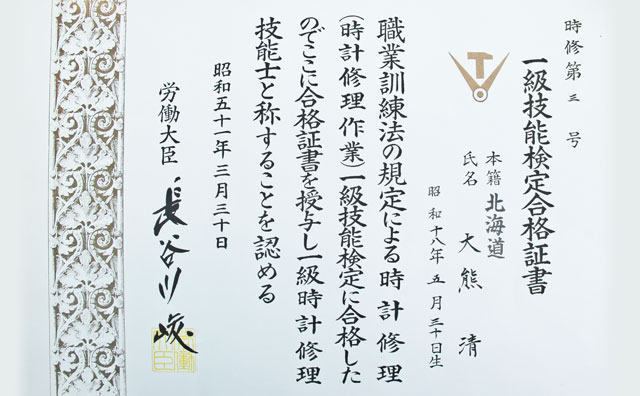 時修第三号
一級技能検定合格証書
本籍 北海道
氏名 大熊 清
昭和十八年五月三十日生
職業訓練法の規定による時計修理
(時計修理作業)一級技能検定に合格した
のでここに合格証書を授与し一級時計修理
技能士と称することを認める
昭和五十一年三月三十日
労働大臣 長谷川峻